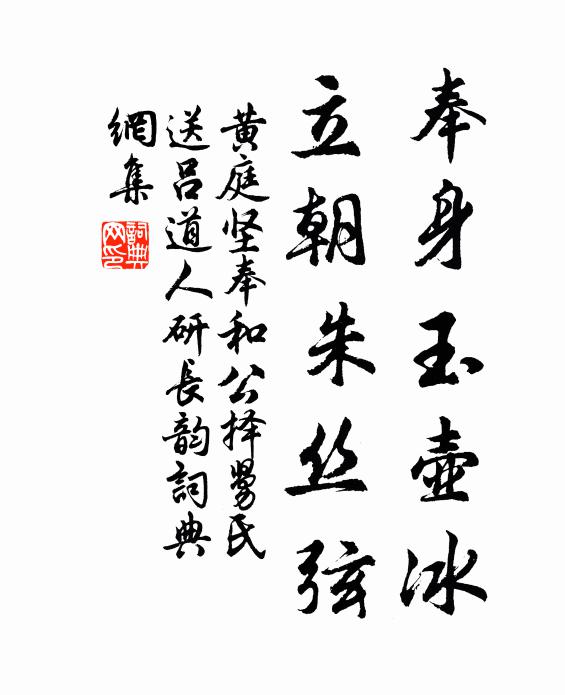 奉身玉壺冰
立朝朱丝弦
黄庭坚奉和公择舅氏
送吕道人研長韵詞典
網集
詞典网印